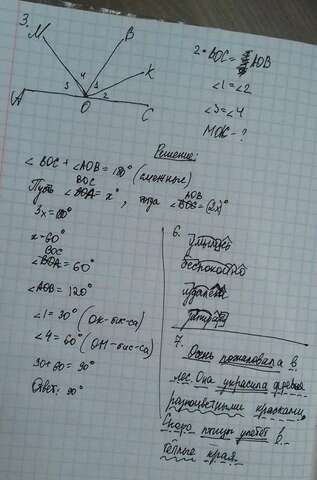 3.
M
B
K
4
3
1
2
A
O
C
2·BOC = AOB
∠1=∠2
∠3=∠4
MOK - ?
Решение:
∠ BOC + ∠AOB = 180° (смежные)
Пусть ∠BOC = x°, тогда ∠AOB = (2x)°
3x = 180°
x = 60°
∠BOC = 60°
∠AOB = 120°
∠1 = 30° (OK-бис-са)
∠4 = 60° (OM-бис-са)
30+60 = 90°
Ответ: 90°
6.
беспокойно
7.
Осень пожаловала в
лес. Она украсила деревья
разноцветными красками.
Скоро птицы улетят в
тёплые края.